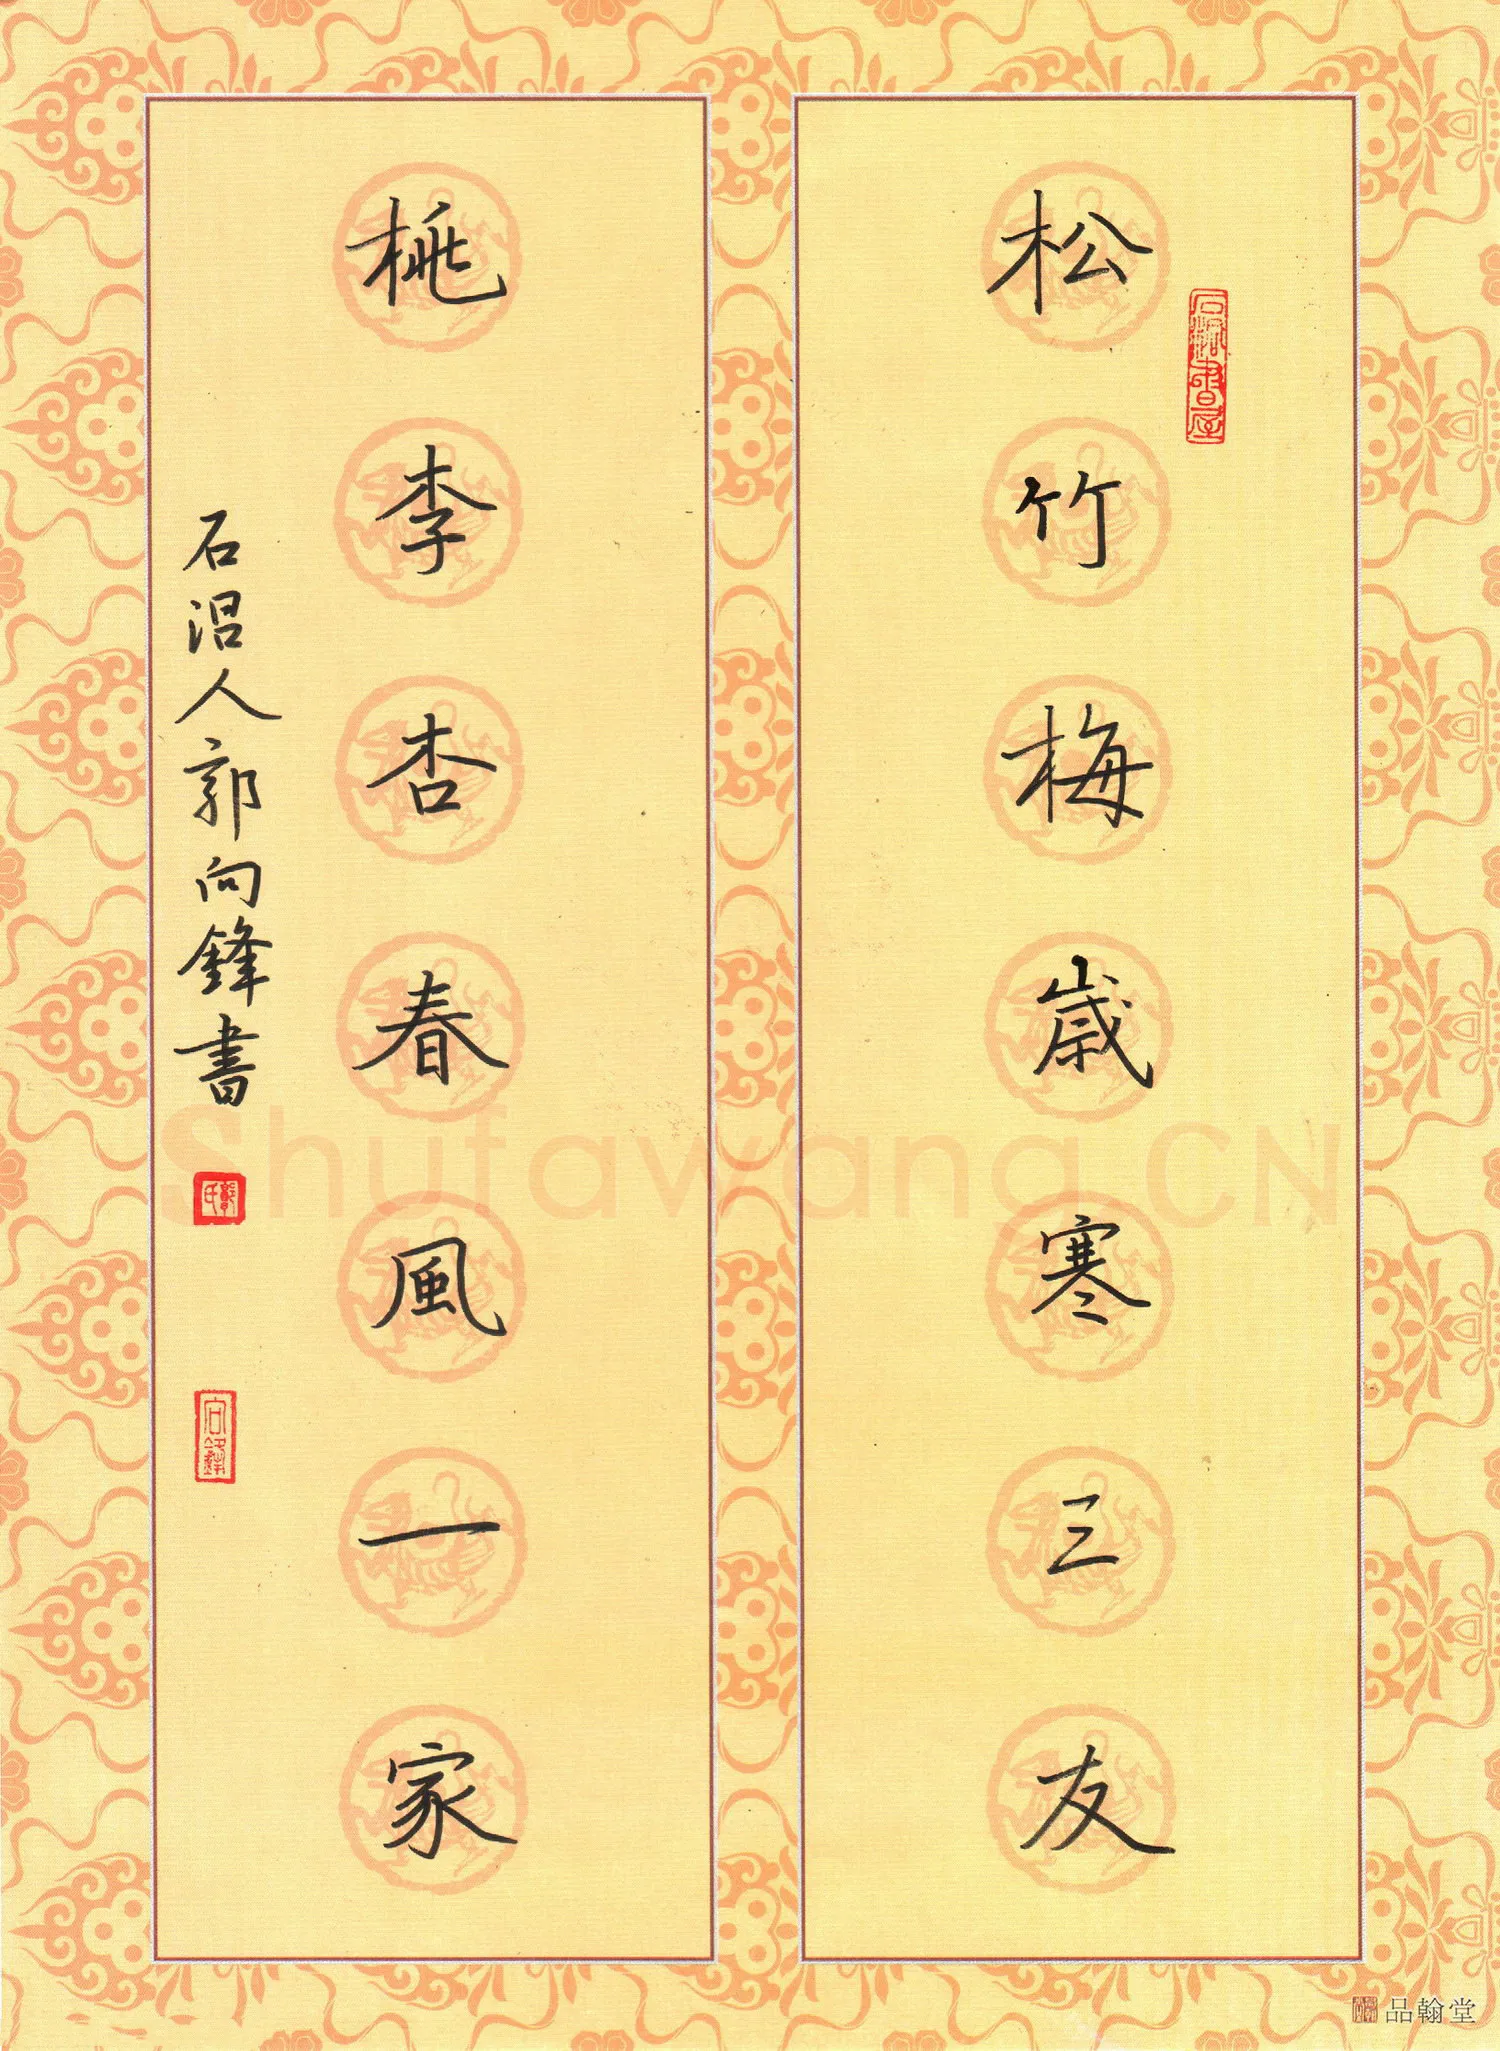 松竹梅歳寒三友
桃李杏春風一家
石淴人郭向鋒書
郭氏
向鋒
Shufawang.CN
品翰堂